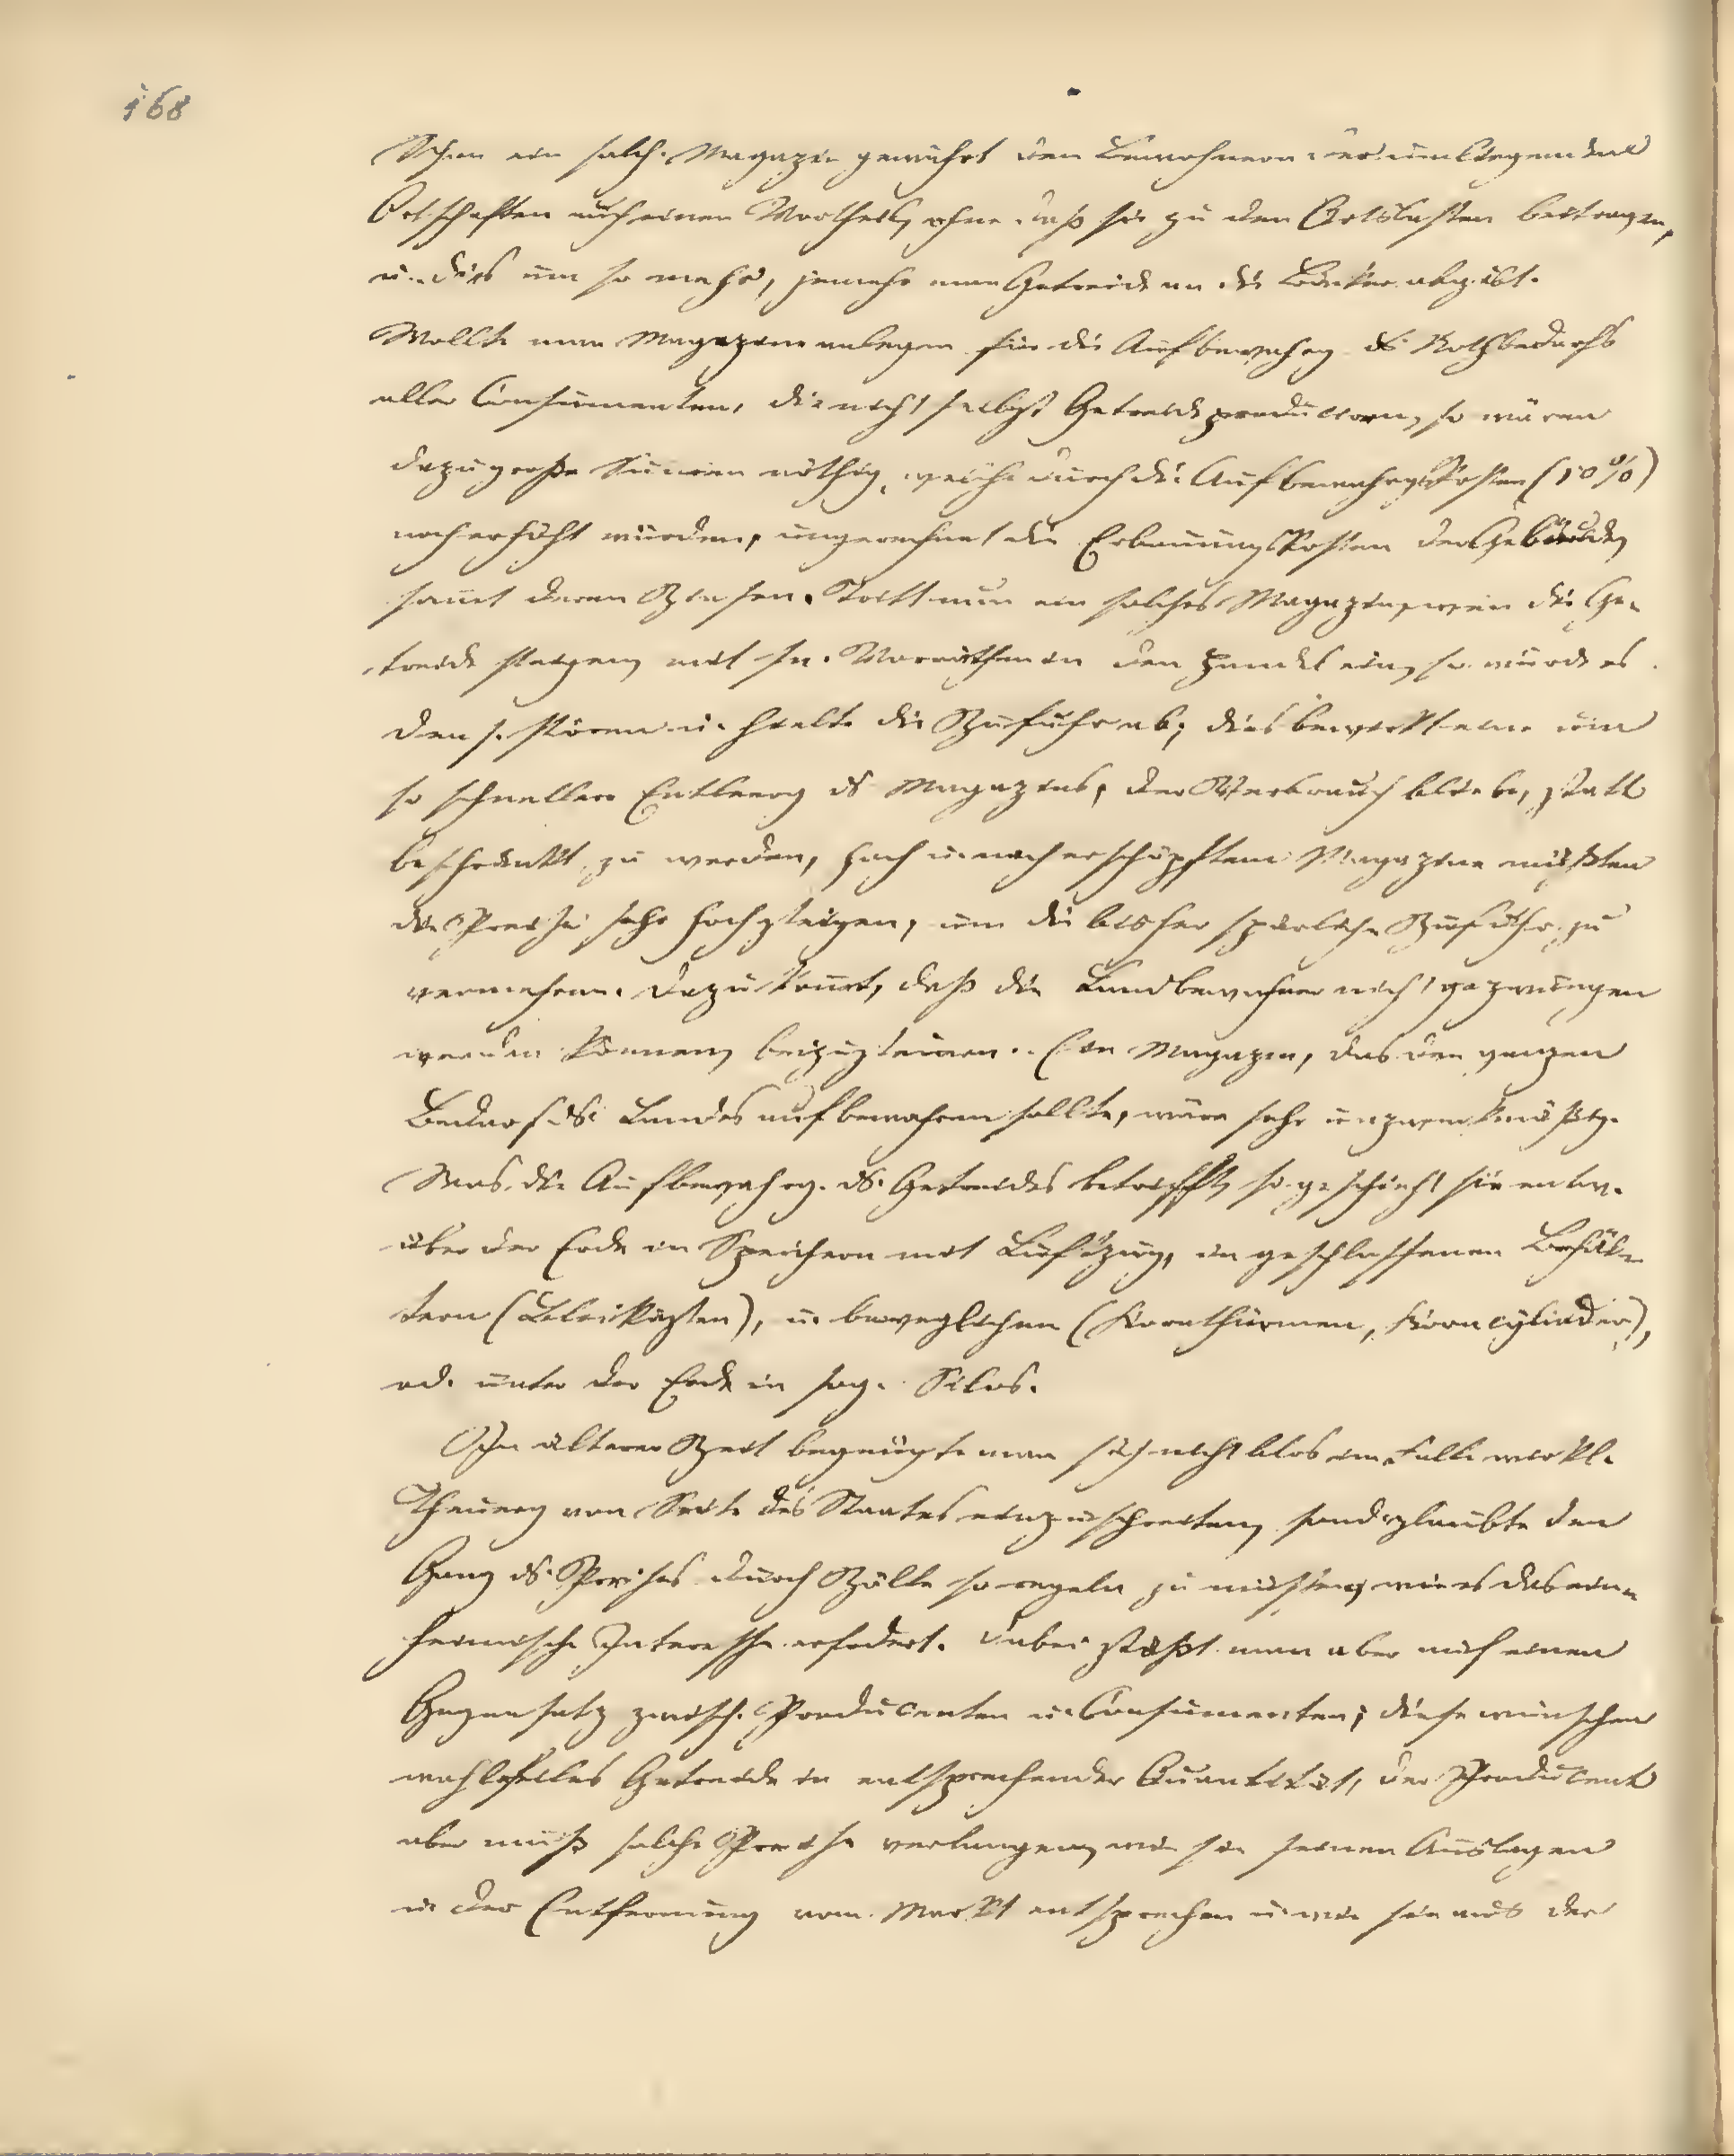 168
Schon ein solch. Magazin gewährt den Bewohnern der umliegenden
Ortschaften auch einen Vortheil, ohne daß sie zu den Ortslasten beitragen,
u. dies um so mehr, jemehr man Getreide an die Bäcker abgibt.
Wollte man Magazine anlegen für die Aufbewahrg ds Nothbedarfs
aller Consumenten, die nicht selbst Getreide produciren, so wären
dazu große Sum̄en nöthig, welche durch die Aufbewahrgskosten (10%)
noch erhöht würden, ungerechnet die Erbauungskosten der Gebäude,
sam̄t deren Zinsen. Tritt nun ein solches Magazin, wen̄ die Ge-
treide steigen, mit sn. Vorräthen in den Handel ein, so würde es
den s. stören u. hielte die Zufuhr ab; dies bewirkt eine um
so schnellere Entleerg ds Magazins, der Verbrauch bliebe, statt
beschränkt zu werden, hoch u. nach erschöpftem Magazine müßten
die Preise sehr hoch steigen, um die bisher spärliche Zufuhr zu
vermehren. Dazu kom̄t, daß die Landbewohner nicht gezwungen
werden können, beizusteuern. Ein Magazin, das den ganzen
Bedarf ds. Landes aufbewahren sollte, wäre sehr unzweckmäßig.
Was die Aufbewahrg. ds. Getreides betrifft, so geschieht sie entw.
über der Erde in Speichern mit Luftzug, in geschlossenen Behäl-
tern (Bleikästen), u. beweglichen (Kornthürmen, Korncylinder),
od. unter der Erde in sog. Silos.
In älterer Zeit begnügte man sich nicht blos im Falle wirkl.
Theuerg von Seite des Staates einzuschreiten, sond. glaubte den
Gang ds. Preises durch Zölle so regeln zu müssen, wie es das ein-
heimische Interesse erfodert. Dabei stößt man aber auf einen
Gegensatz zwisch. Producenten u. Consumenten; diese wünschen
wohlfeiles Getreide in entsprechender Quantität, der Producent
aber muß solche Preise verlangen, wie sie seinen Auslagen
u. der Entfernung vom Markt entsprechen u. wie sie aus der